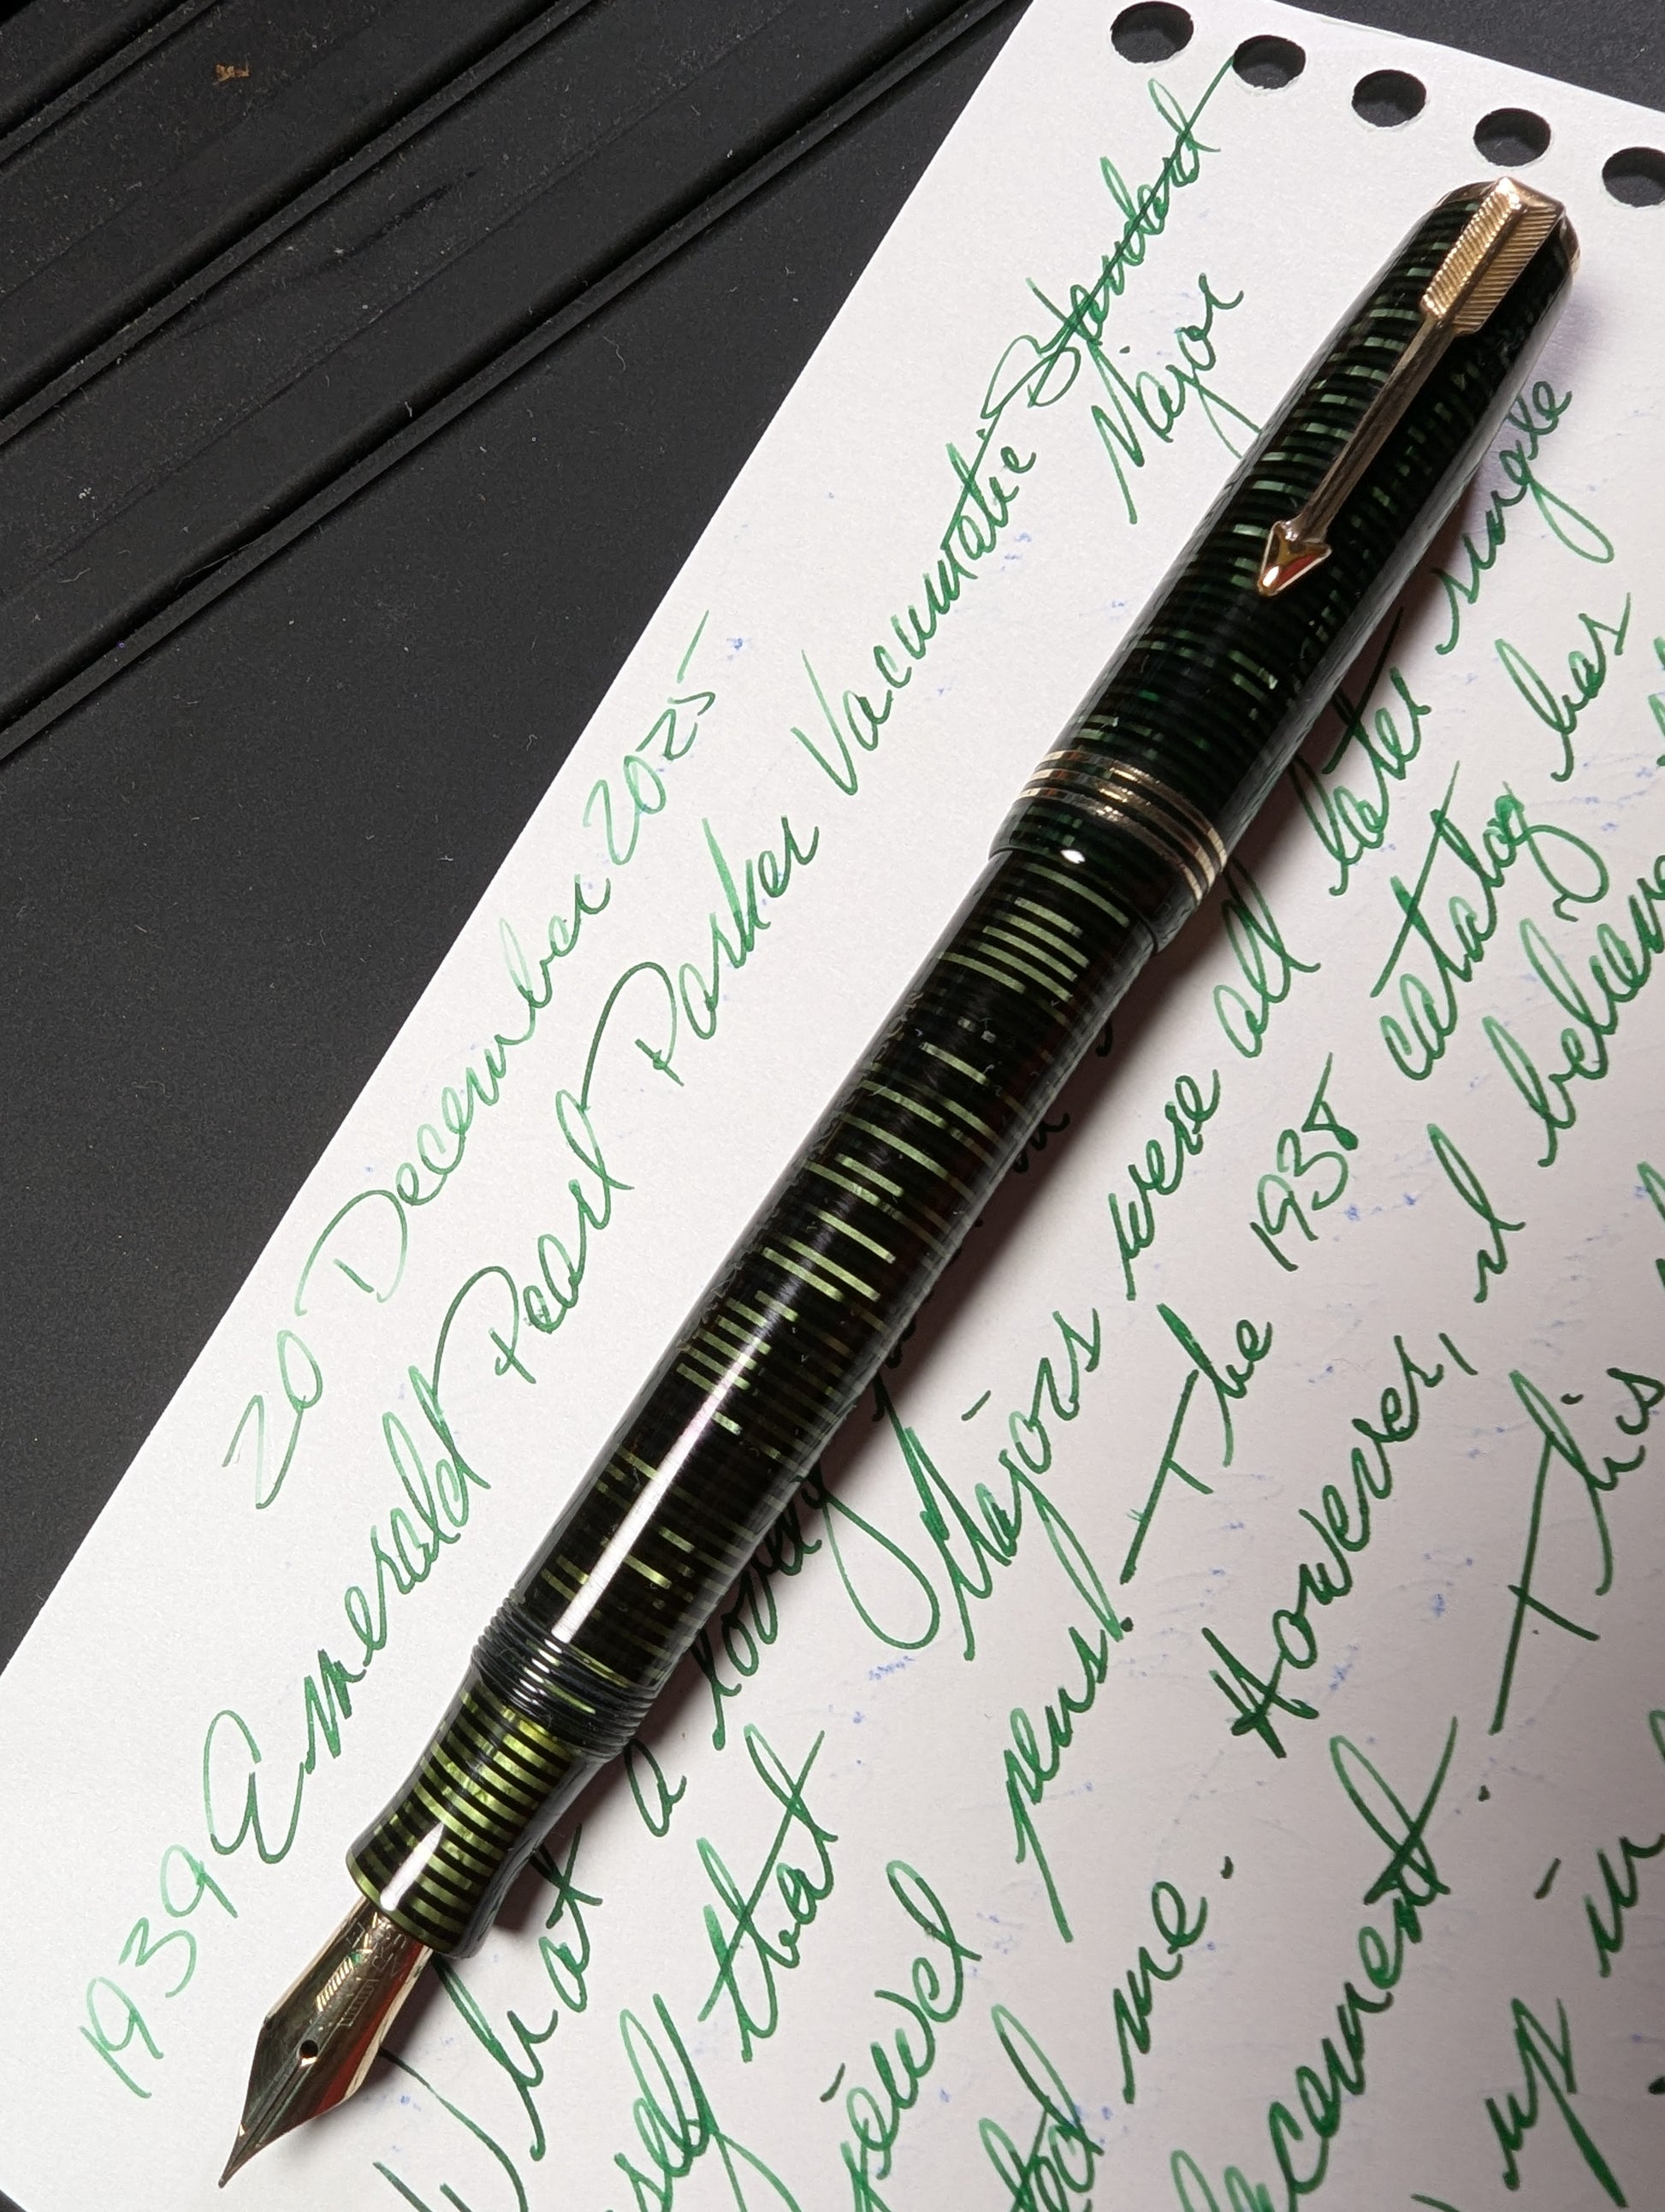 20 December 2025
1939 Emerald Pearl Parker Vacumatic Standard
Major
What a lovely
self that Majors were all later single
jewel pens. The 1938 catalog has
me. However, I
This
up in